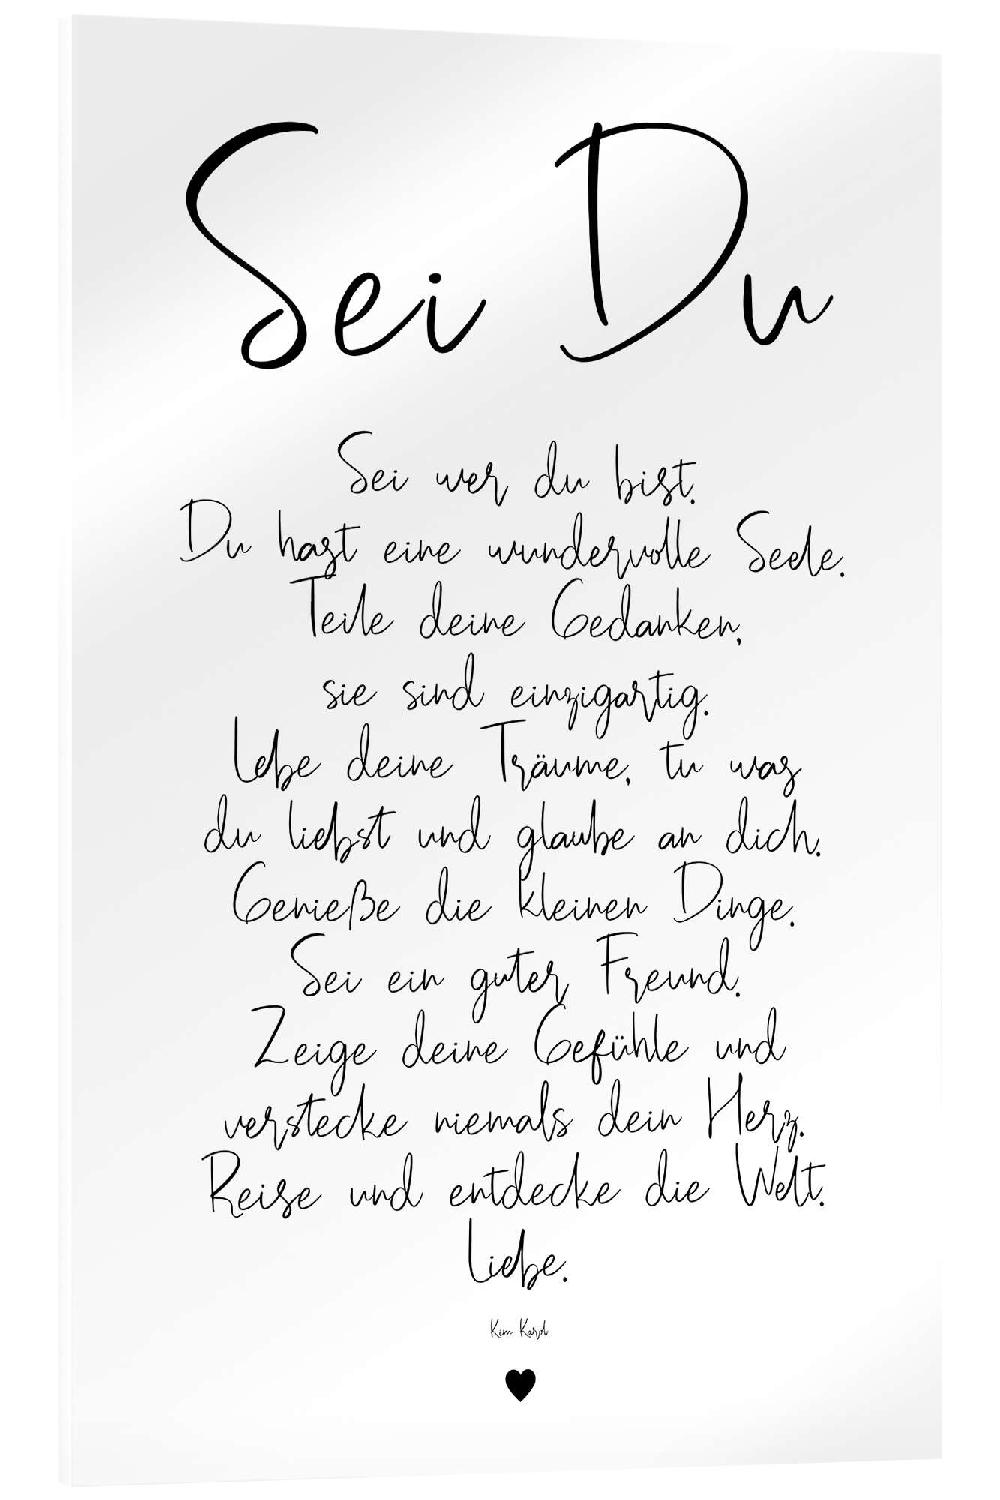 Sei Du
Sei wer du bist.
Du hast eine wundervolle Seele.
Teile deine Gedanken,
sie sind einzigartig.
Lebe deine Träume, tu was
du liebst und glaube an dich.
Genieße die kleinen Dinge.
Sei ein guter Freund.
Zeige deine Gefühle und
verstecke niemals dein Herz.
Reise und entdecke die Welt.
Liebe.
Kim Karsh